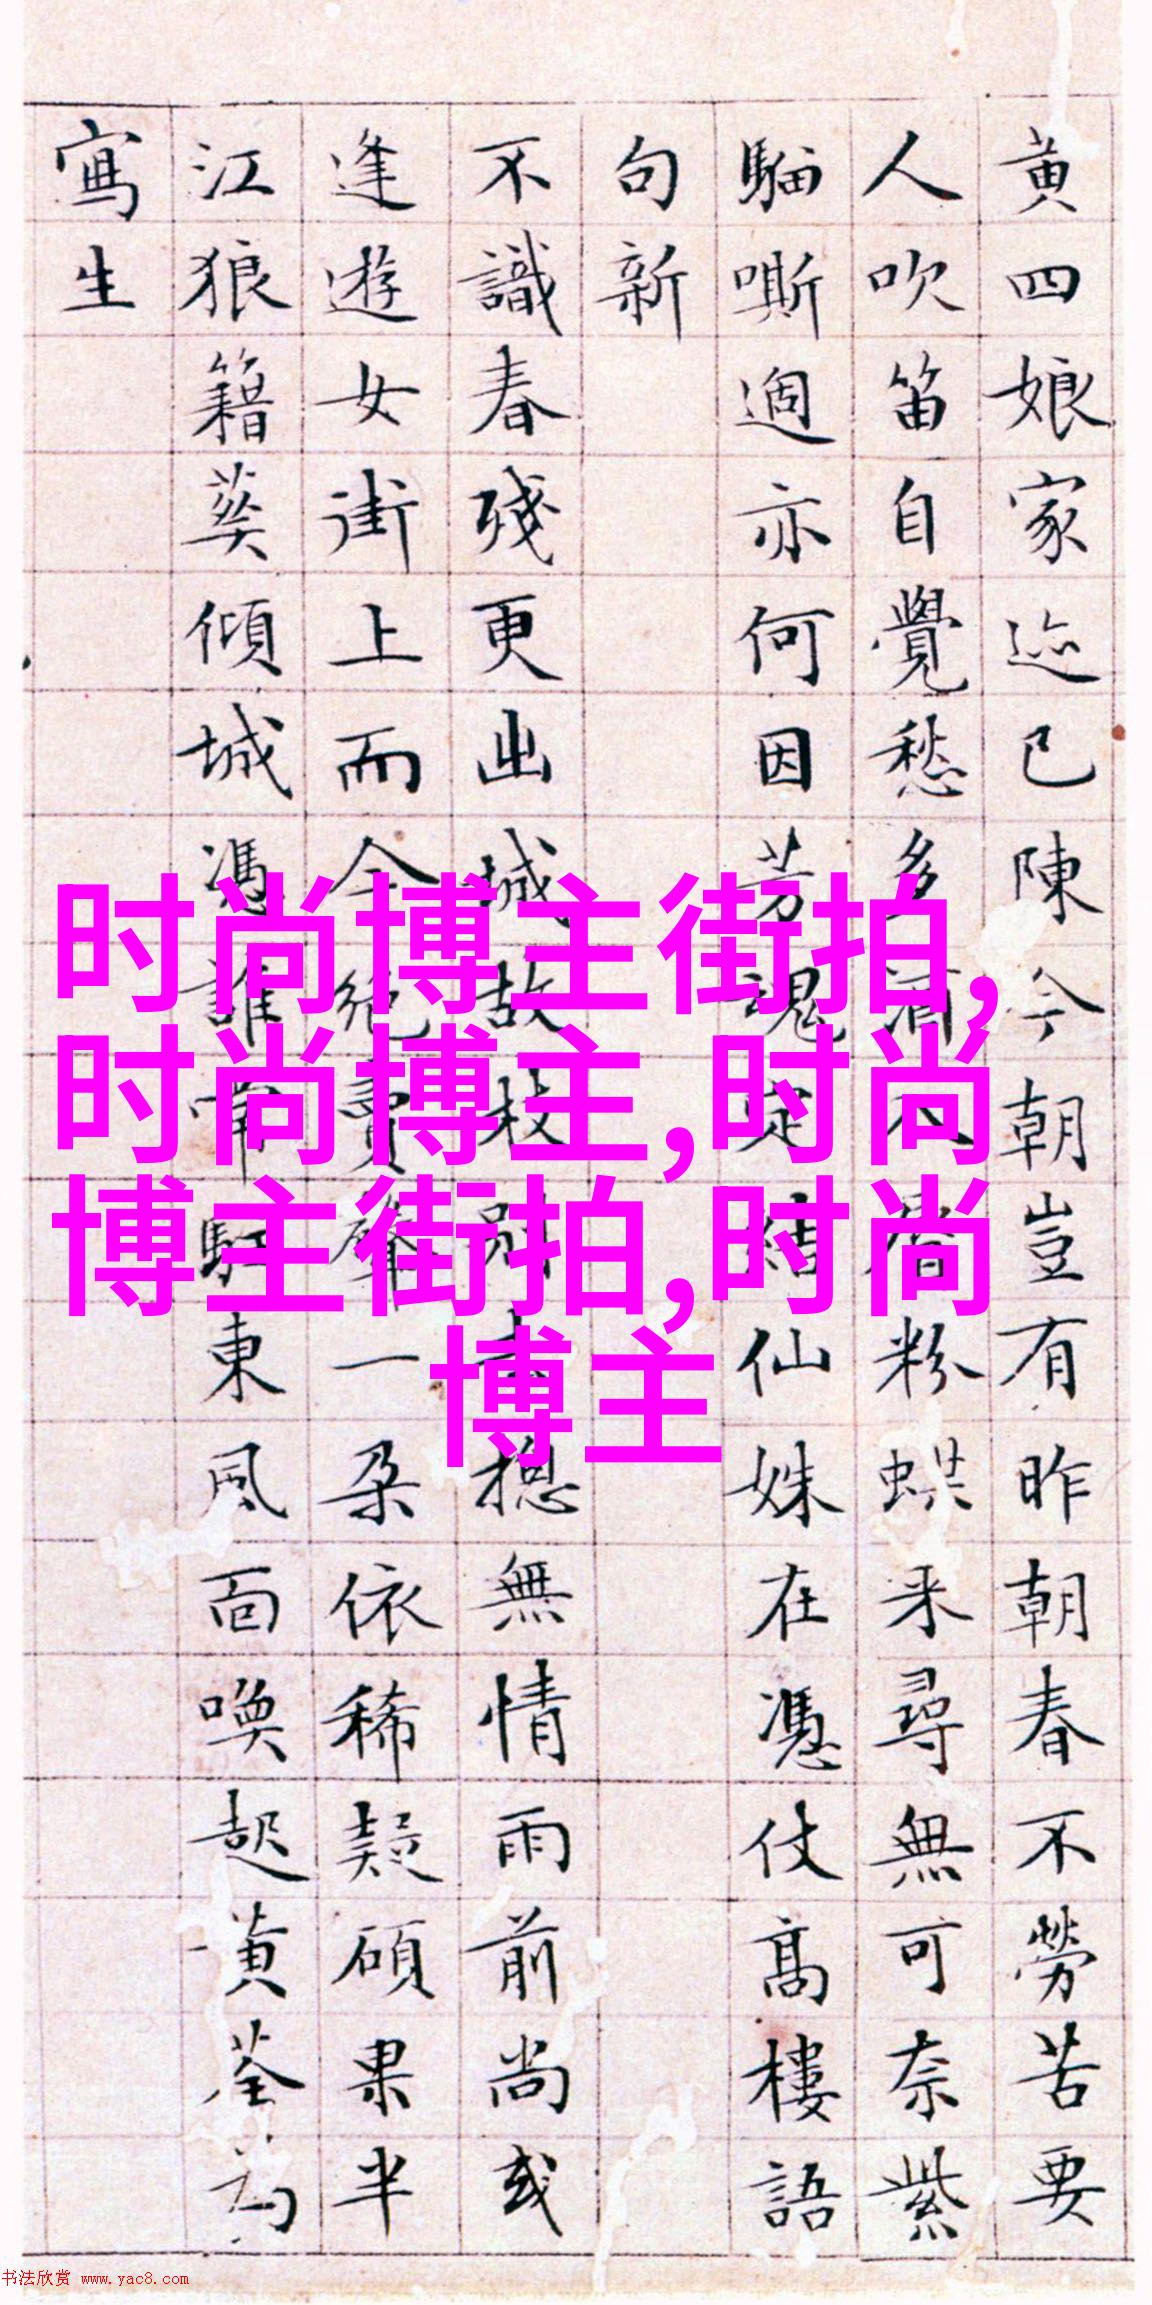 黄四娘家迹已陳今朝豈有昨朝春不勞苦要
人吹笛自覺愁多粉蜨来尋無可奈紫
騮嘶過亦何因芳魂定結仙姝在憑仗高樓語
句新
不識春殘更出城故枝別去摠無情雨前尚或
逢遊女街上而今絕賣聲一朵依稀疑碩果半
江狼籍葵傾城馮誰駐東風面喚起黄荃為
寫生
时尚博主街拍,
时尚博主,时尚
博主街拍,时尚
博主
书法欣赏 www.yac8.com